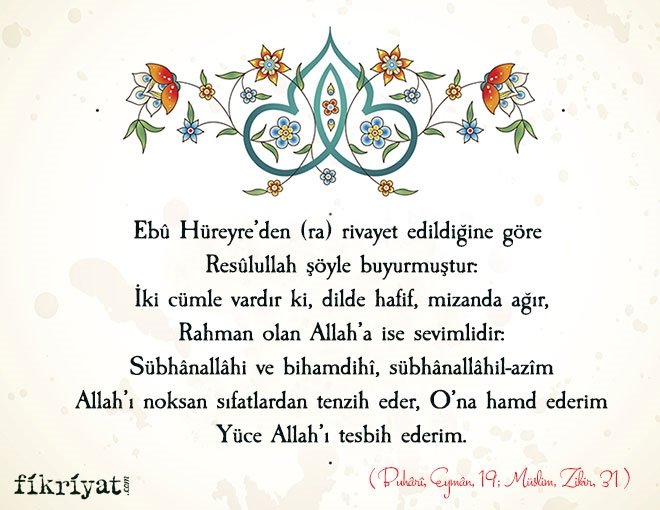 Ebû Hüreyre'den (ra) rivayet edildiğine göre
Resûlullah şöyle buyurmuştur:
İki cümle vardır ki, dilde hafif, mizanda ağır,
Rahman olan Allah'a ise sevimlidir:
Sübhânallâhi ve bihamdihî, sübhânallâhil-azîm
Allah'ı noksan sıfatlardan tenzih eder, O'na hamd ederim
Yüce Allah'ı tesbih ederim.
(Buhârî, Eymân, 19; Müslim, Zikir, 31)
fikriyat.com